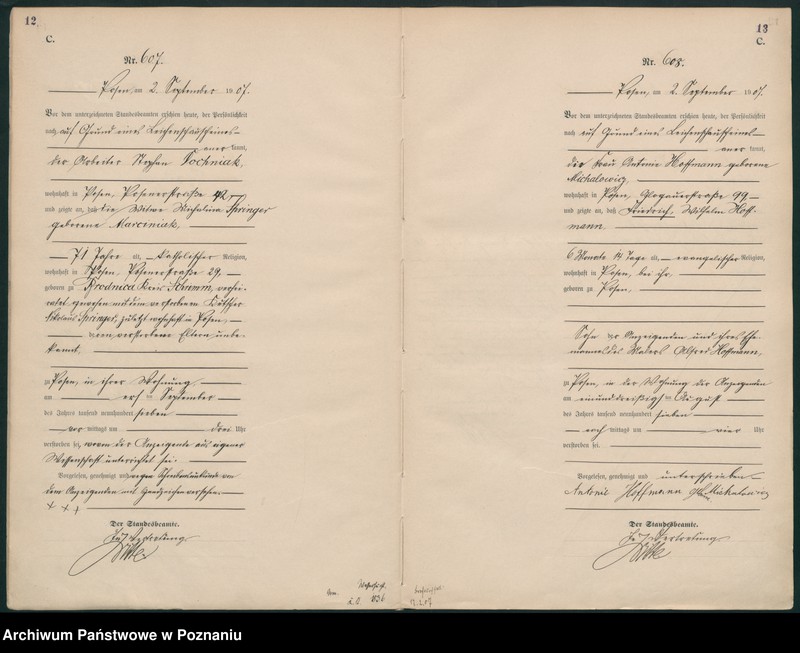 12
C.
Nr. 607.
Posen, am 2. September 1907.
Vor dem unterzeichneten Standesbeamten erschien heute, der Persönlichkeit
nach auf Grund eines Leichenschauscheines
aner kannt,
der Arbeiter Stephan Tochniak,
wohnhaft in Posen, Posenerstraße 42
und zeigte an, daß die Witwe Michalina Springer
geborene Marciniak,
71 Jahre alt, katholischer Religion,
wohnhaft in Posen, Posenerstraße 29,
geboren zu Brodnica Kreis Schrimm, verhei-
ratet gewesen mit dem verstorbenen Böttcher
Nikolaus Springer, zuletzt wohnhaft in Posen,
verstorbene Eltern unbe-
kannt,
zu Posen, in ihrer Wohnung
am ersten September
des Jahres tausend neunhundert sieben
vor mittags um drei Uhr
verstorben sei, wovon der Anzeigende aus eigener
Wissenschaft unterrichtet sei.
Vorgelesen, genehmigt und wegen Schreibensunkunde von
dem Anzeigenden mit Handzeichen versehen.
+ + +
Der Standesbeamte.
In Vertretung.
13
C.
Nr. 608.
Posen, am 2. September 1907.
Vor dem unterzeichneten Standesbeamten erschien heute, der Persönlichkeit
nach auf Grund eines Leichenschauscheines
aner kannt,
die Frau Antonie Hoffmann geborene
Michalowicz,
wohnhaft in Posen, Glogauerstraße 99,
und zeigte an, daß Friedrich Wilhelm Hoff-
mann
6 Monate 14 Tage alt, evangelischer Religion,
wohnhaft in Posen, bei ihr,
geboren zu Posen,
Sohn der Anzeigenden und ihres Ehe-
mannes des Malers Alfred Hoffmann,
zu Posen, in der Wohnung der Anzeigenden
am einunddreißigsten August
des Jahres tausend neunhundert sieben
nach mittags um vier Uhr
verstorben sei.
Vorgelesen, genehmigt und unterschrieben
Antonie Hoffmann geb. Michalowicz
Der Standesbeamte.
In Vertretung.
Archiwum Państwowe w Poznaniu